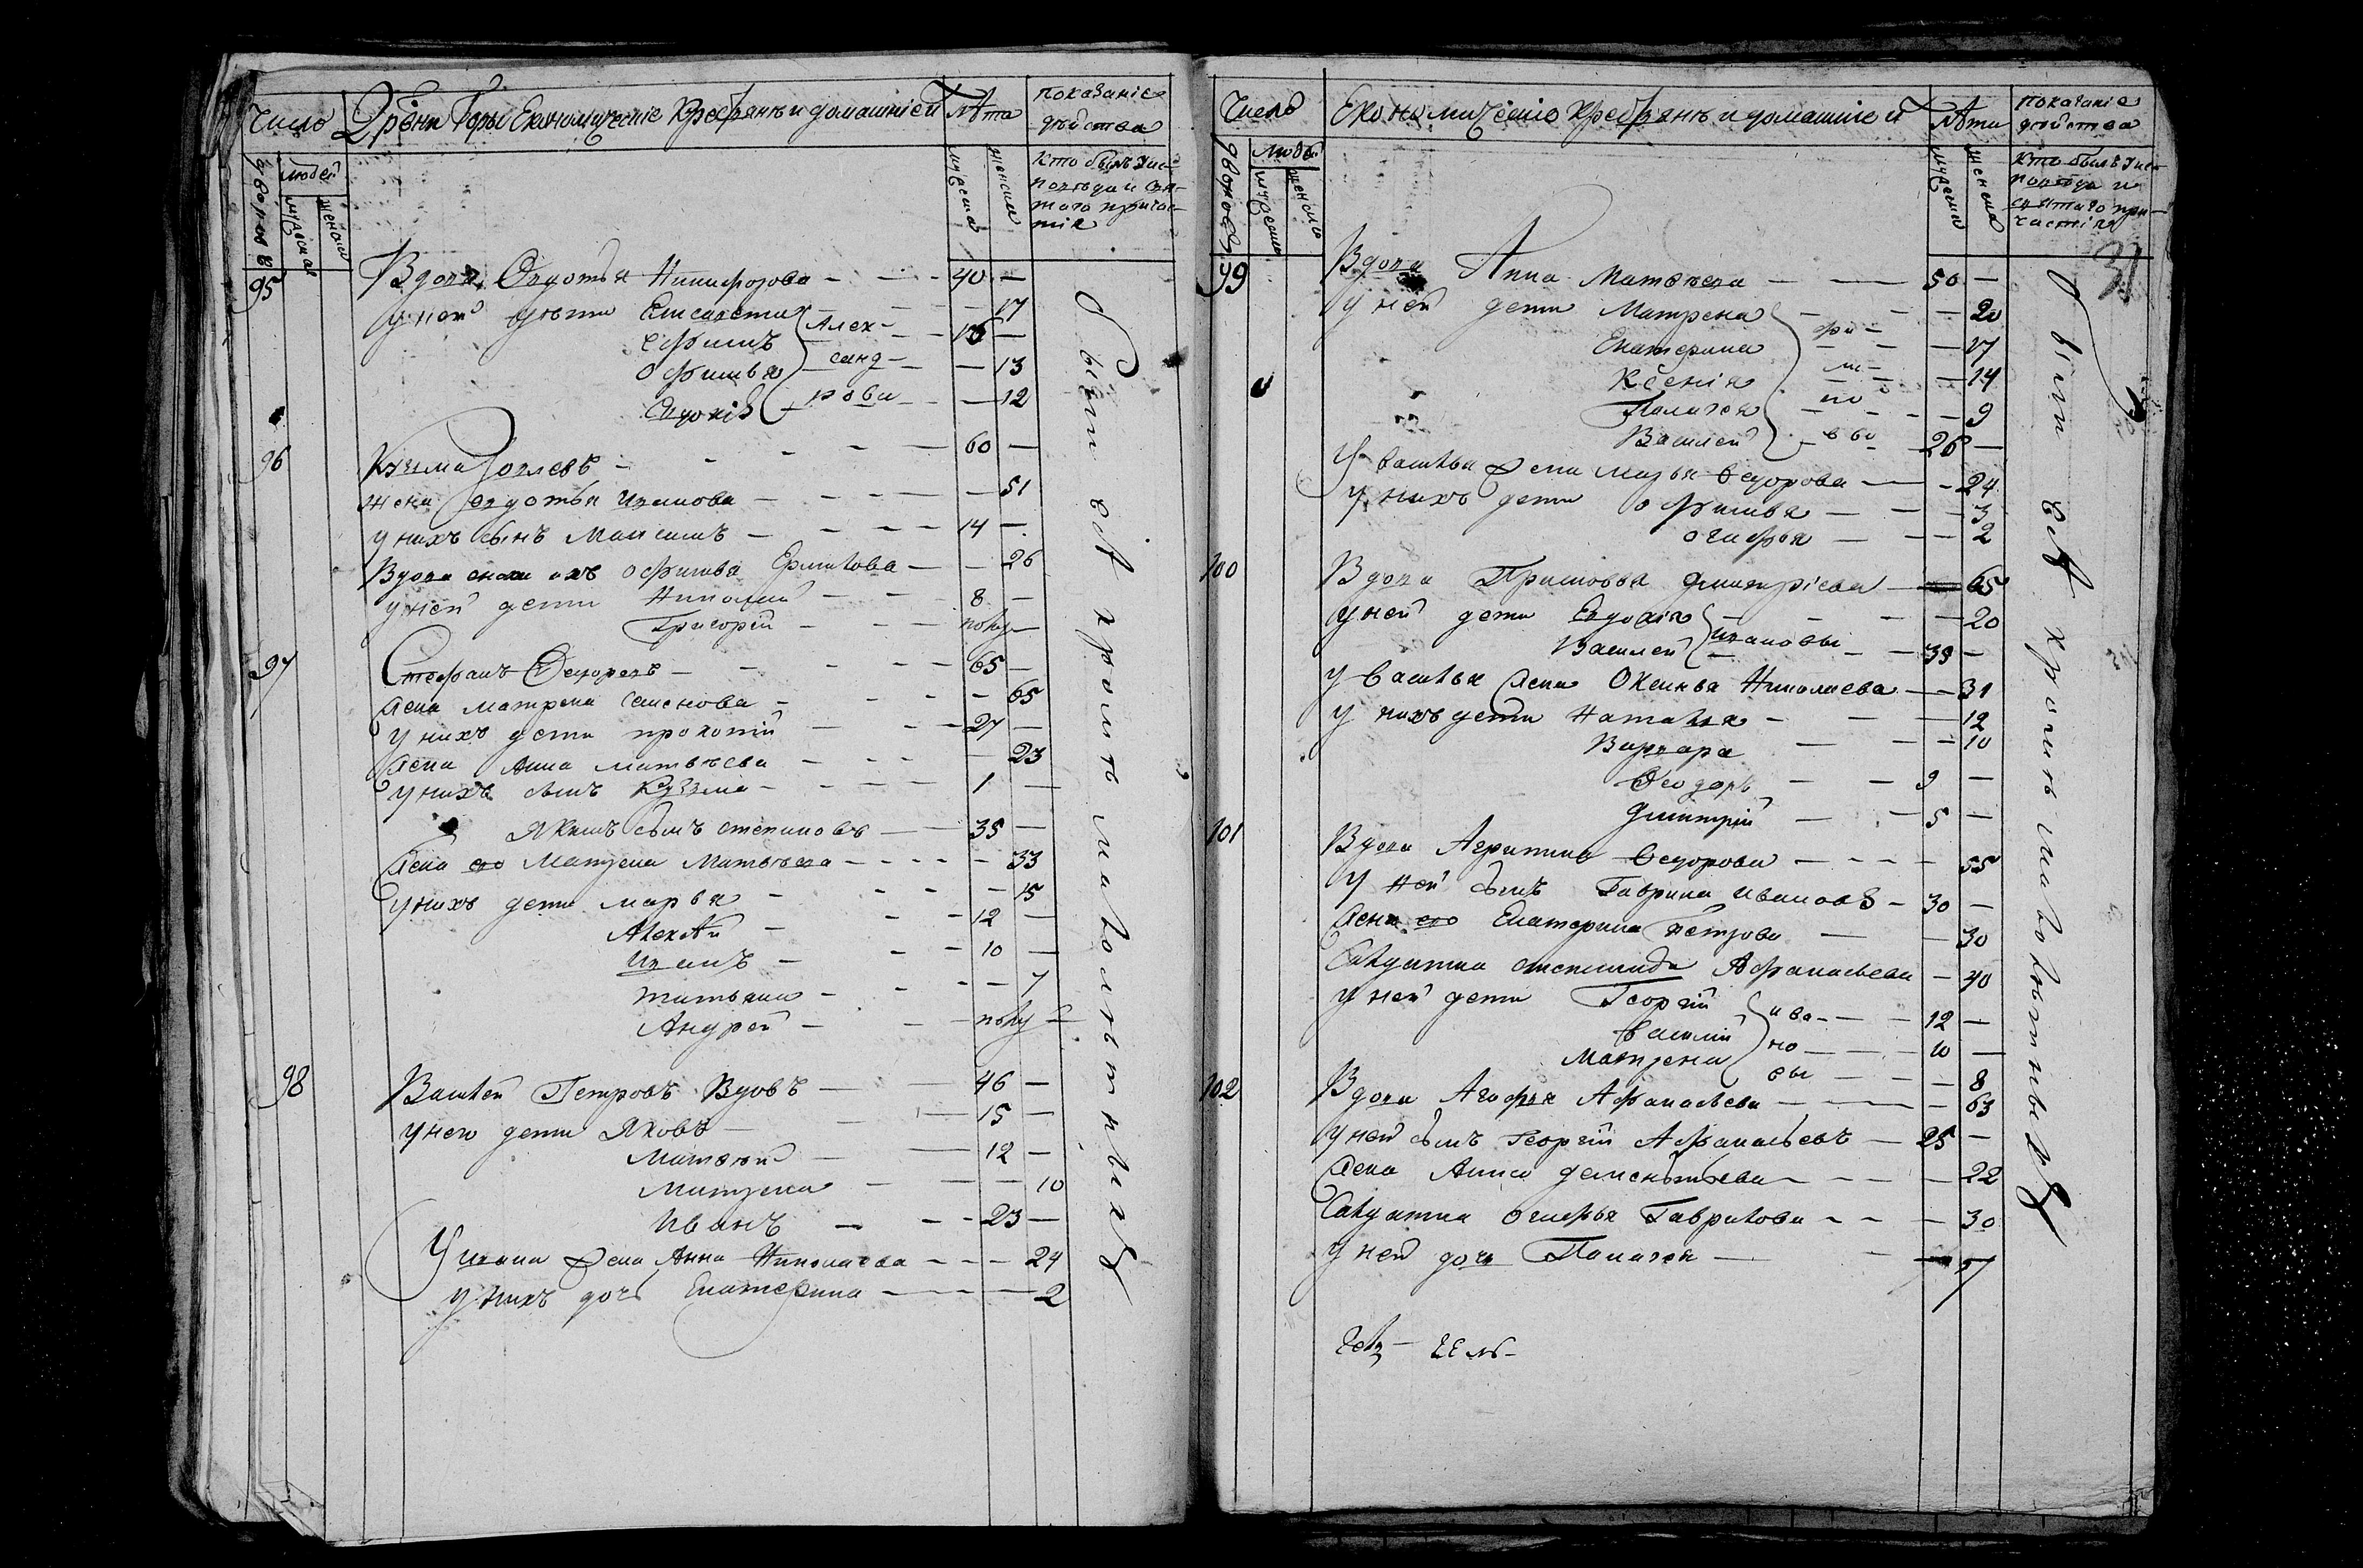 Число
Дрѣвни Горы Економические Крестьянъ и домашнiей
Лѣта
показанiе
дѣйства
дворовъ
людей
мужеска
женска
мужеска
женска
кто былъ у ис-
повѣди и свя-
таго причас-
тiя
95
Вдова Овдотья Никифорова 40 —
у ней дѣти Елисавета — 17
Ефимъ Алек- 16 —
Офимья санд- — 13
Евдокiя рови — 12
96
Кузма Iовлевъ 60 —
жена Овдотья Иванова — 51
у нихъ сынъ Максимъ 14 —
Вдова сноха ихъ Офимья Ермилова — 26
у ней дети Николай 8 —
Григорiй полу —
97
Стефанъ Федоровъ 65 —
Жена Матрена Семенова — 65
у нихъ дети прокопiй 27 —
Жена Анна матвѣева — 23
у нихъ сынъ Кузма 1 —
Якимъ сынъ степановъ 35 —
Жена его Матрена Матвѣева — 33
у нихъ дети марья — 15
Алексѣй 12 —
Иванъ 10 —
татьяна — 7
Андрей полу —
98
Василей Петровъ Вдовъ 46 —
у него дети Яковъ 15 —
Матвѣй 12 —
Матрена — 10
Иванъ 23 —
У ивана Жена Анна Николаева — 24
у нихъ дочь Екатерина — 2
Всѣ кромѣ малолѣтныхъ
Число
Економическiе Крестьянъ и домашнiе и
Лѣта
показанiе
дѣйства
дворовъ
людей
мужеска
женска
мужеска
женска
Кто былъ у ис-
повѣди и
святаго при-
частiя
99
Вдова Анна Матвѣева 50 —
у ней дети Матрена — 20
Екатерина — 17
Ксенiя — 14
Палагея — 9
Василей 26 —
У василья Жена марья Федорова — 24
у нихъ дети Офимья — 3
огафья — 2
100
Вдова Прасковья Дмитрiева — 65
у ней дети Евдокiя — 20
Василей ивановы 39 —
у василья Жена Оксинья Николаева — 31
у нихъ дети Наталья — 12
Варвара — 10
Феодоръ 9 —
Дмитрiй 5 —
101
Вдова Агрипина Федорова — 55
у ней сынъ Гаврила Ивановъ 30 —
Жена его Екатерина Петрова — 30
Салдатка степанида Афанасьева — 40
у ней дети Георгiй ива- 12 —
василiй но 10 —
Матрена вы — 8
102
Вдова Агафья Афанасьева — 63
у ней сынъ Георгiй Афанасьевъ 25 —
Жена Анна дементьева — 22
Салдатка огафья Гаврилова — 30
у ней дочь Палагея — 7
Всѣ кромѣ малолѣтныхъ